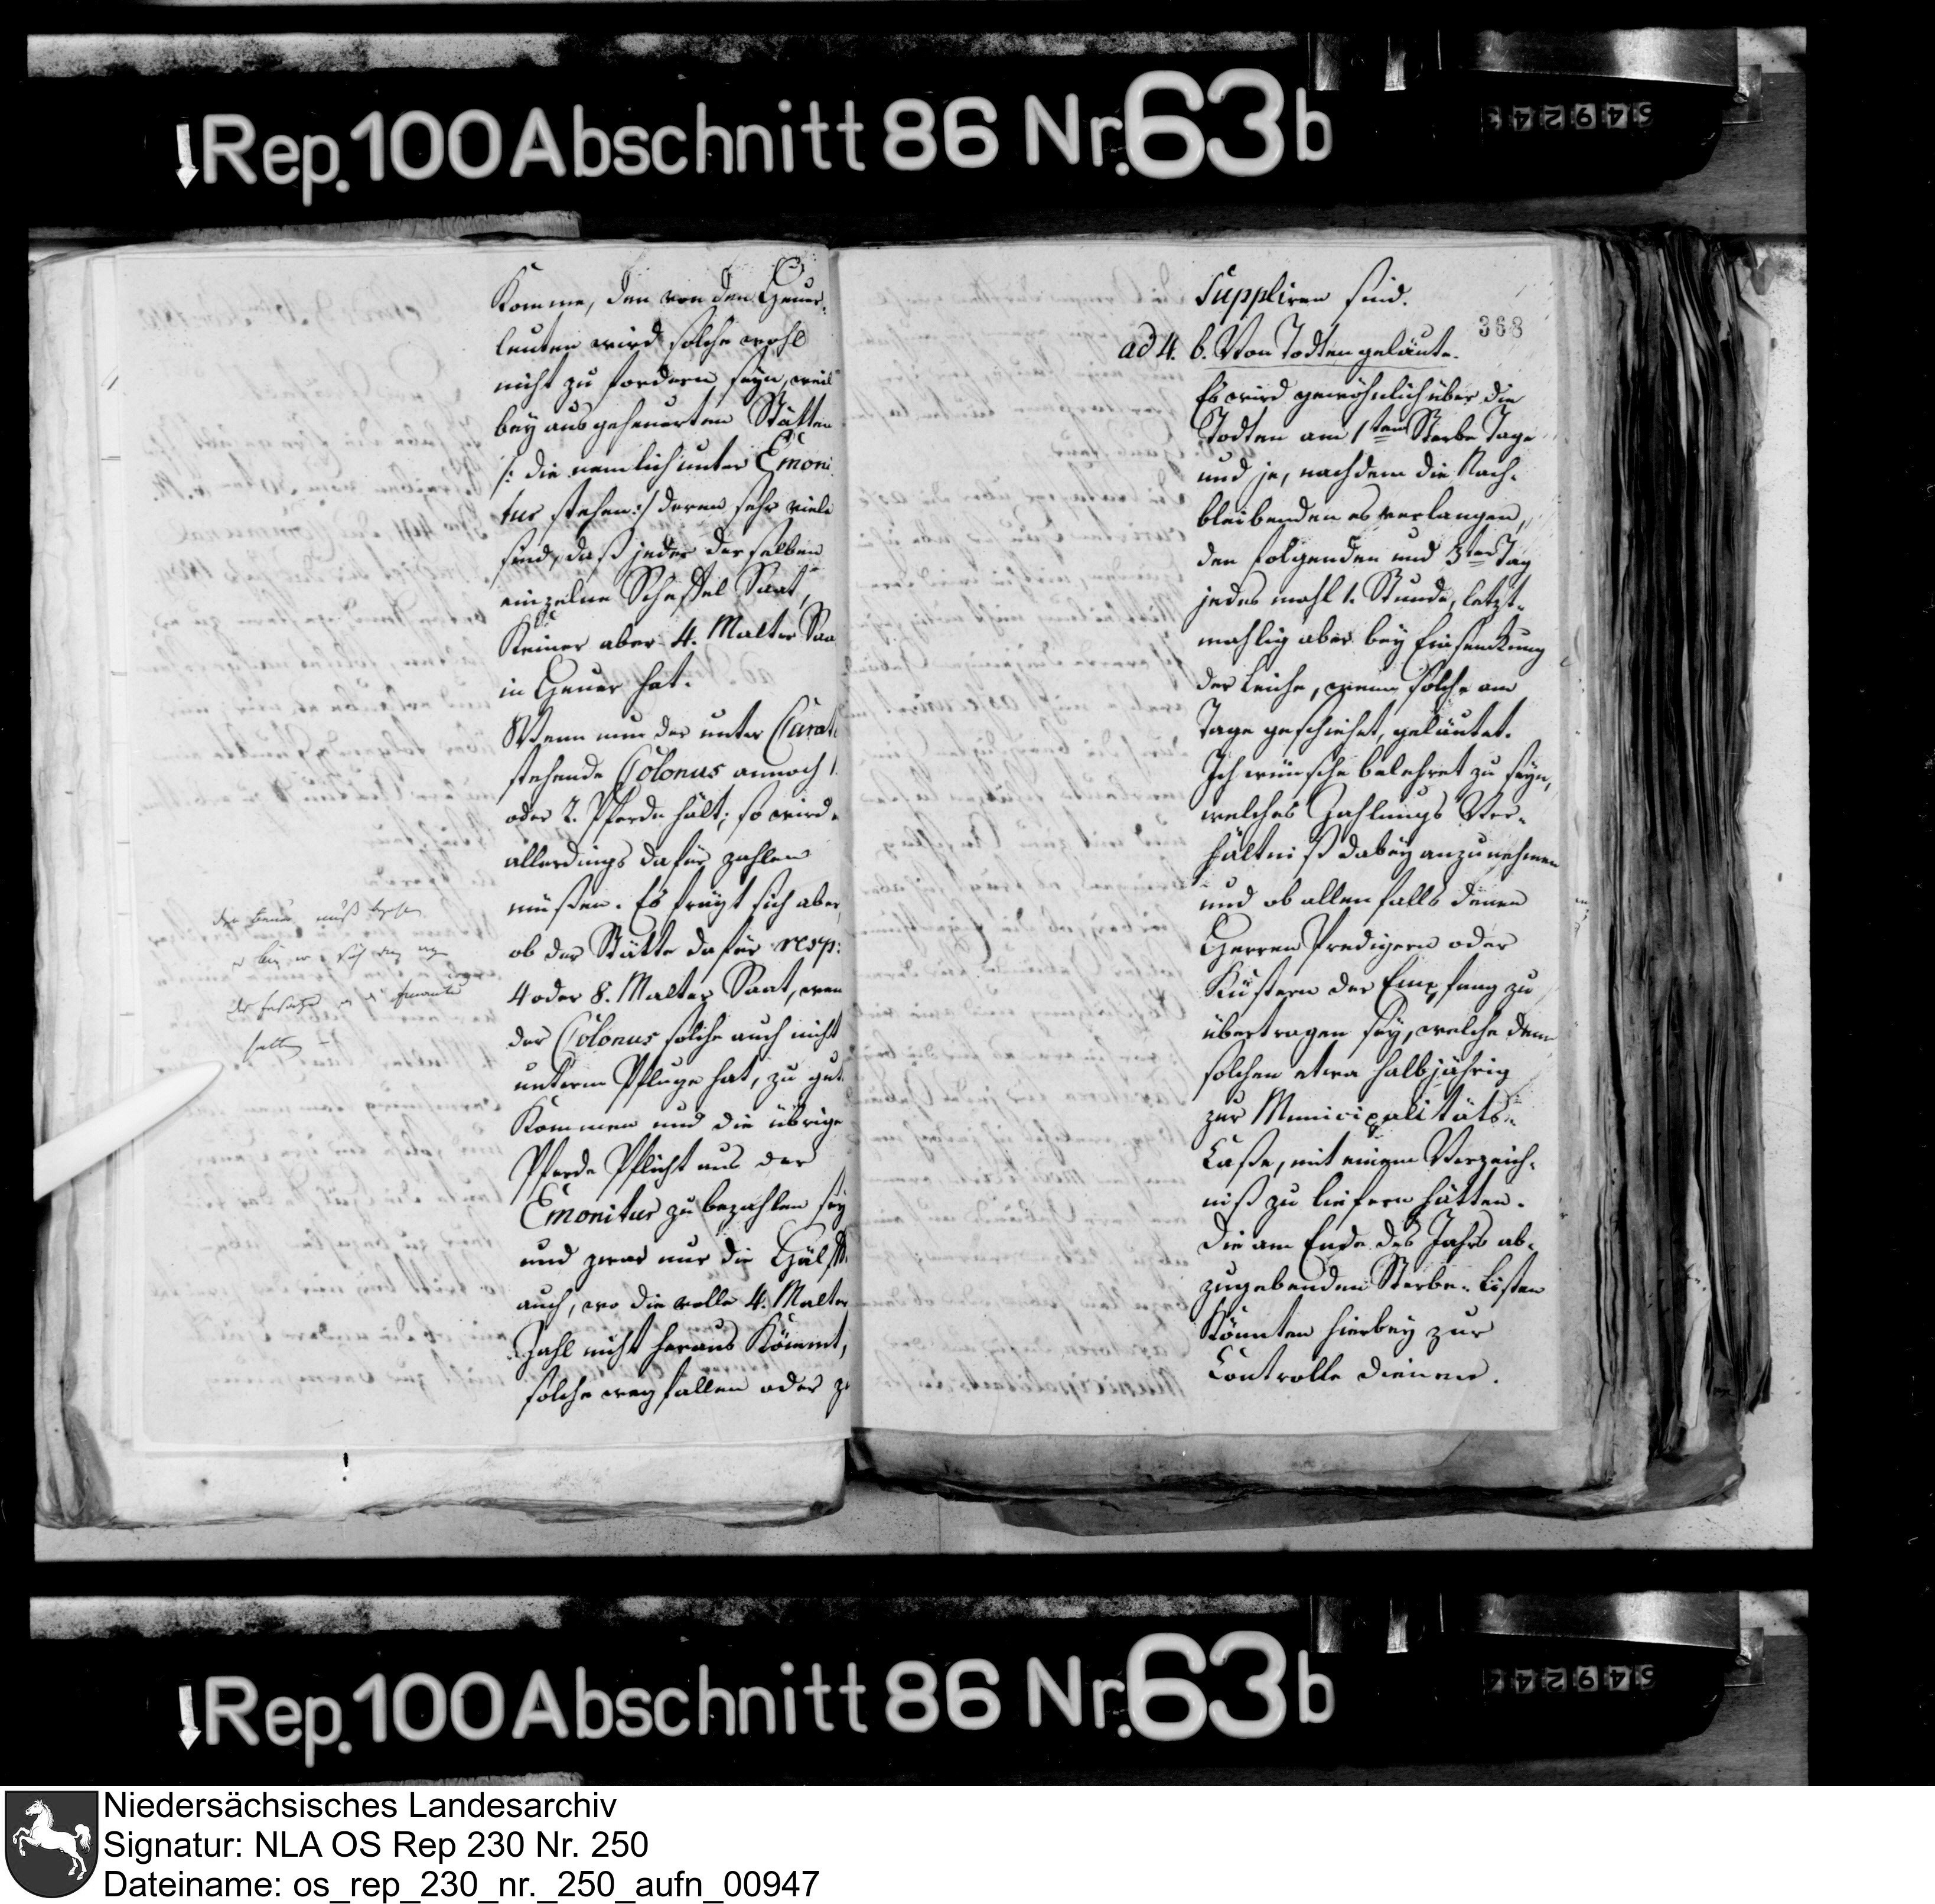 Rep. 100 Abschnitt 86 Nr. 63 b
Komme, den von den Heuer-
leuten wird solche wohl
nicht zu fordern seyn, weil
bey ausgeheuerten Stätten
/: die nemlich unter Emoni
tus stehen :/ deren sehr viele
sind, daß jeder derselben
einzelne Scheffel Saat,
Keiner aber 4. Malter Saa
in Heuer hat.
Wenn nun der unter Curat
stehende Colonus annoch 1.
oder 2. Pferde hält; so wird
allerdings dafür zahlen
müßen. Es frägt sich aber,
ob der Stätte dafür resp:
4 oder 8. Malter Saat, wen
der Colonus solche auch nicht
unterm Pfluge hat, zu gut
Kommen und die übrige
Pferde Pflicht aus der
Emonitus zu bezahlen sey
und zwar nur die Hälfte
auch, wo die volle 4. Malter
Zahl nicht heraus Kömmt,
solche wegfallen oder zu
muß
suppliren sind.
368
ad 4. b. Von Todten geläute.
Es wird gewöhnlich über die
Todten am 1ten Sterbe Tage
und je, nachdem die Nach-
bleibenden es verlangen,
den folgenden und 3ten Tag
jedes mahl 1. Stunde, letzt-
mahlig aber bey Einsenkung
der Leiche, wenn solche am
Tage geschiehet, geläutet.
Ich wünsche belehret zu seyn,
welches Zahlungs Ver-
hältniß dabey anzunehmen
und ob allenfalls denen
Herren Predigern oder
Küstern der Empfang zu
übertragen sey, welche denn
solchen etwa halbjährig
zur Municipalitäts-
Casse, mit einem Verzeich-
niß zu liefern hätten.
Die am Ende des Jahrs ab-
zugebenden Sterbe-Listen
Könnten hierbey zur
Controlle dienen.
Rep. 100 Abschnitt 86 Nr. 63 b
Niedersächsisches Landesarchiv
Signatur: NLA OS Rep 230 Nr. 250
Dateiname: os_rep_230_nr._250_aufn_00947